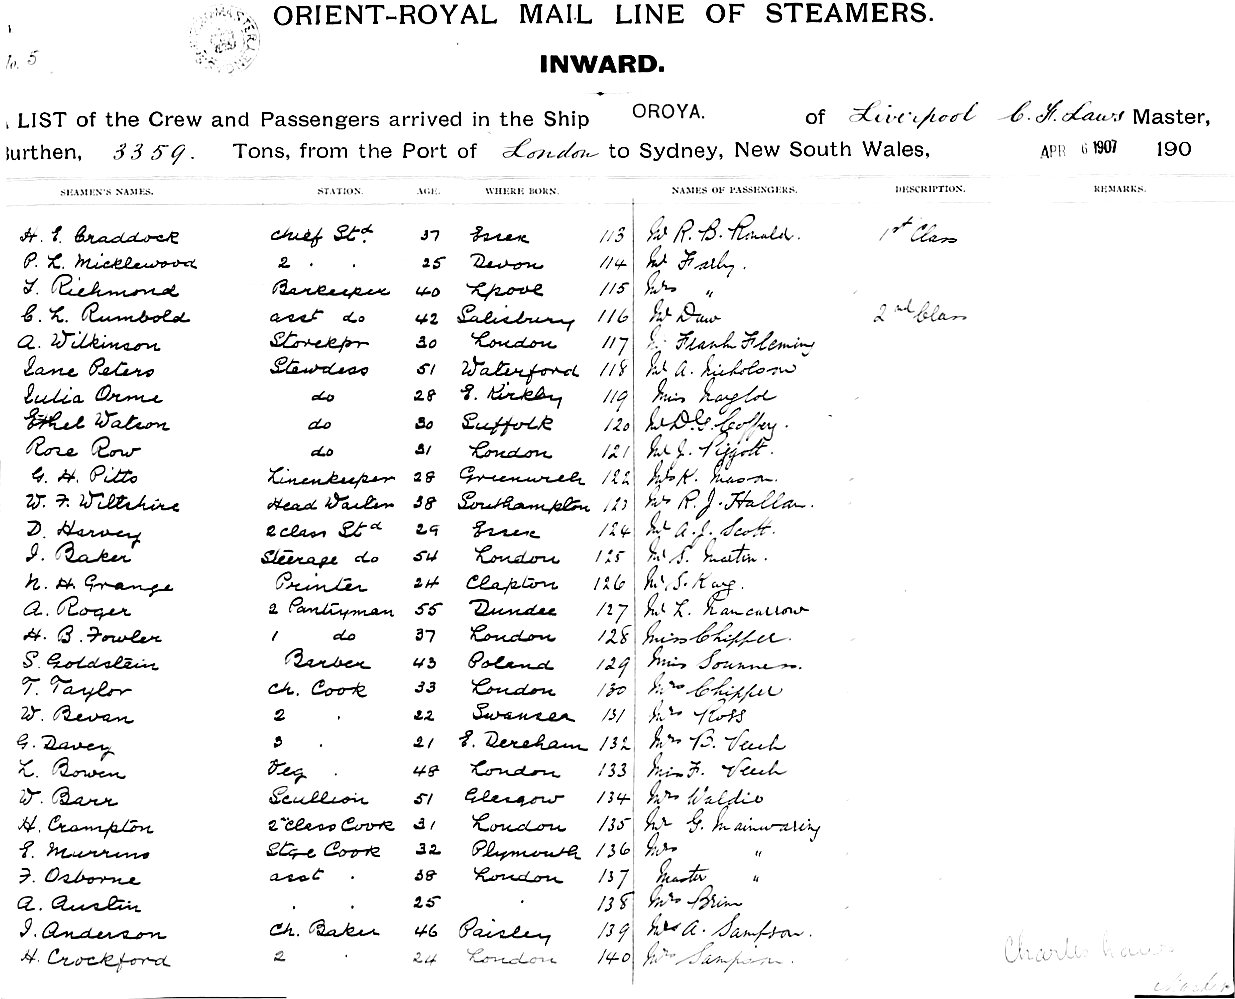 ORIENT-ROYAL MAIL LINE OF STEAMERS.
No. 5
INWARD.
LIST of the Crew and Passengers arrived in the Ship OROYA. of Liverpool C. F. Laws Master,
Burthen, 3359. Tons, from the Port of London to Sydney, New South Wales, APR 6 1907 190
SEAMEN'S NAMES. STATION. AGE. WHERE BORN. NAMES OF PASSENGERS. DESCRIPTION. REMARKS.
H. E. Craddock Chief Std 37 Essex 113 Mr R. B. Ronald. 1st Class
P. L. Micklewood 2 . . 25 Devon 114 Mr Farly.
T. Richmond Barkeeper 40 Lpool 115 Mrs "
C. L. Rumbold asst do 42 Salisbury 116 Mr Daw 2nd Class
A. Wilkinson Storekpr 30 London 117 Frank Fleming
Jane Peters Stewdess 51 Waterford 118 Mr A. Nicholson
Julia Orme do 28 E. Kirkby 119 Miss
Ethel Watson do 30 Suffolk 120 Mr D. G. Coffey.
Rose Row do 31 London 121 Mr J. Piggott.
G. H. Pitts Linenkeeper 28 Greenwich 122 K. Mason.
W. F. Wiltshire Head Waiter 38 Southampton 123 R. J. Hallan.
D. Harvey 2 class Std 29 Essex 124 Mr A. J. Scott.
J. Baker Steerage do 54 London 125 Mr S. Martin.
N. H. Grange Printer 24 Clapton 126 Mr S. Kay.
A. Roger 2 Pantryman 55 Dundee 127 Mr L. Nancarrow
H. B. Fowler 1 do 37 London 128 Miss Chipper.
S. Goldstein Barber 43 Poland 129 Miss Sounness.
T. Taylor Ch. Cook 33 London 130 Mrs Chipper
W. Bevan 2 . 22 Swansea 131 Mrs Ross
G. Davey 3 . 21 E. Dereham 132 Mrs B. Veech
L. Bowen Veg . 48 London 133 Miss F. Veech
W. Barr Scullion 51 Glasgow 134 Mrs Waldie
H. Crampton 2nd class Cook 31 London 135 Mr G. Mainwaring
E. Murrins Stge Cook 32 Plymouth 136 Mrs "
F. Osborne asst . 38 London 137 Master "
A. Austin . . 25 . 138 Mrs Brim
J. Anderson Ch. Baker 46 Paisley 139 Mrs A. Sampson.
H. Crockford 2 . 24 London 140 Mrs Sampson.
Charles Laws
Master